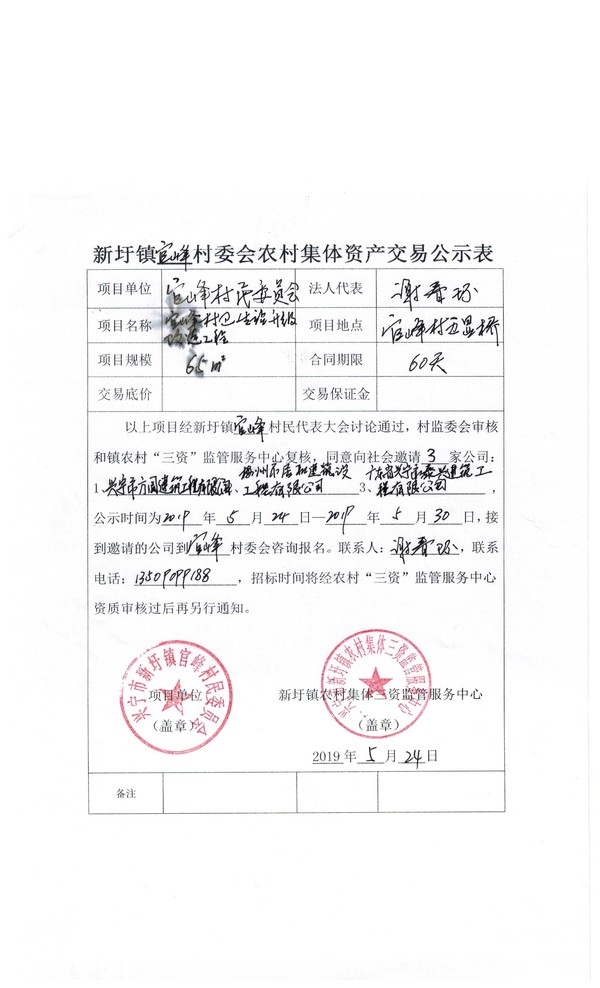 新圩镇官峰村委会农村集体资产交易公示表
项目单位 官峰村民委员会 法人代表 谢
项目名称 官峰村卫生站升级改造工程 项目地点 官峰村五显桥
项目规模 65m² 合同期限 60天
交易底价 交易保证金
以上项目经新圩镇官峰村民代表大会讨论通过,村监委会审核
和镇农村“三资”监管服务中心复核,同意向社会邀请 3 家公司:
1、兴宁市方园建筑工程有限公司 2、梅州市居和建筑设工程有限公司 3、广东省兴宁市兴建筑工程有限公司,
公示时间为2019 年 5 月 24 日—2019 年 5 月 30 日,接
到邀请的公司到官峰村委会咨询报名。联系人:谢,联系
电话:13509099188,招标时间将经农村“三资”监管服务中心
资质审核过后再另行通知。
兴宁市新圩镇官峰村民委员会
兴宁市新圩镇农村集体三资监管服务中心
项目单位 新圩镇农村集体三资监管服务中心
(盖章) (盖章)
2019 年 5 月 24 日
备注